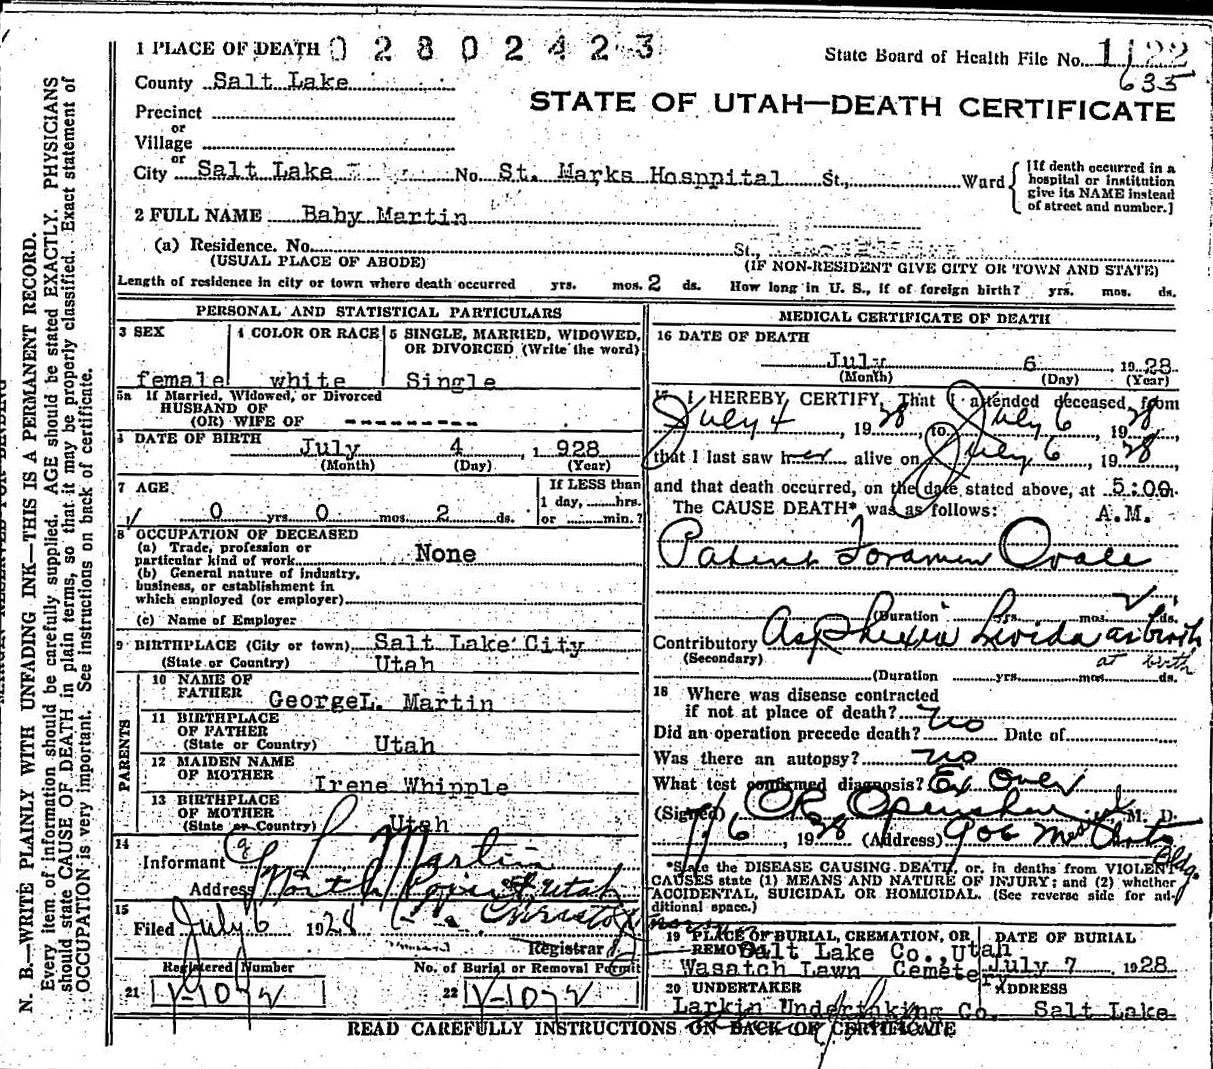 1 PLACE OF DEATH 0 2 8 0 2 4 2 3
State Board of Health File No. 1122
635
County Salt Lake
STATE OF UTAH—DEATH CERTIFICATE
Precinct
or
Village
or
City Salt Lake No. St. Marks Hosppital St., Ward
[If death occurred in a
hospital or institution
give its NAME instead
of street and number.]
2 FULL NAME Baby Martin
(a) Residence. No. St.,
(USUAL PLACE OF ABODE) (IF NON-RESIDENT GIVE CITY OR TOWN AND STATE)
Length of residence in city or town where death occurred yrs. mos. 2 ds. How long in U. S., if of foreign birth? yrs. mos. ds.
PERSONAL AND STATISTICAL PARTICULARS
3 SEX
female
4 COLOR OR RACE
white
5 SINGLE, MARRIED, WIDOWED,
OR DIVORCED (Write the word)
Single
5a If Married, Widowed, or Divorced
HUSBAND OF
(OR) WIFE OF ---------
6 DATE OF BIRTH
July 4, 1928
(Month) (Day) (Year)
7 AGE
0 yrs. 0 mos. 2 ds.
If LESS than
1 day, hrs.
or min.?
8 OCCUPATION OF DECEASED
(a) Trade, profession or
particular kind of work None
(b) General nature of industry,
business, or establishment in
which employed (or employer)
(c) Name of Employer
9 BIRTHPLACE (City or town) Salt Lake City
(State or Country) Utah
PARENTS
10 NAME OF
FATHER GeorgeL. Martin
11 BIRTHPLACE
OF FATHER
(State or Country) Utah
12 MAIDEN NAME
OF MOTHER
Irene Whipple
13 BIRTHPLACE
OF MOTHER
(State or Country) Utah
14
Informant G L Martin
Address North Point Utah
15
Filed July 6 1928
Registrar
Registered Number No. of Burial or Removal Permit
21 V-1072 22 V-1072
MEDICAL CERTIFICATE OF DEATH
16 DATE OF DEATH
July 6, 1928
(Month) (Day) (Year)
17 I HEREBY CERTIFY, That I attended deceased from
July 4, 1928, to July 6, 1928,
that I last saw her alive on July 6, 1928,
and that death occurred, on the date stated above, at 5:00 m.
The CAUSE DEATH* was as follows: A.M.
Patent Foramen Ovale
(Duration yrs. mos. 2 ds.
Contributory Asphyxia Livida at birth
(Secondary) at birth
(Duration yrs. mos. ds.
18 Where was disease contracted
if not at place of death? no
Did an operation precede death? Date of
Was there an autopsy? no
What test confirmed diagnosis?
(Signed) M. D.
7/6, 1928 (Address) 906 Med Arts
Bldg.
*State the DISEASE CAUSING DEATH, or, in deaths from VIOLENT
CAUSES state (1) MEANS AND NATURE OF INJURY; and (2) whether
ACCIDENTAL, SUICIDAL OR HOMICIDAL. (See reverse side for ad-
ditional space.)
19 PLACE OF BURIAL, CREMATION, OR
REMOVAL Salt Lake Co., Utah
Wasatch Lawn Cemetery
DATE OF BURIAL
July 7 1928
20 UNDERTAKER
Larkin Undertaking Co.
ADDRESS
Salt Lake
READ CAREFULLY INSTRUCTIONS ON BACK OF CERTIFICATE
N. B.—WRITE PLAINLY WITH UNFADING INK—THIS IS A PERMANENT RECORD.
Every item of information should be carefully supplied. AGE should be stated EXACTLY. PHYSICIANS
should state CAUSE OF DEATH in plain terms, so that it may be properly classified. Exact statement of
OCCUPATION is very important. See instructions on back of certificate.